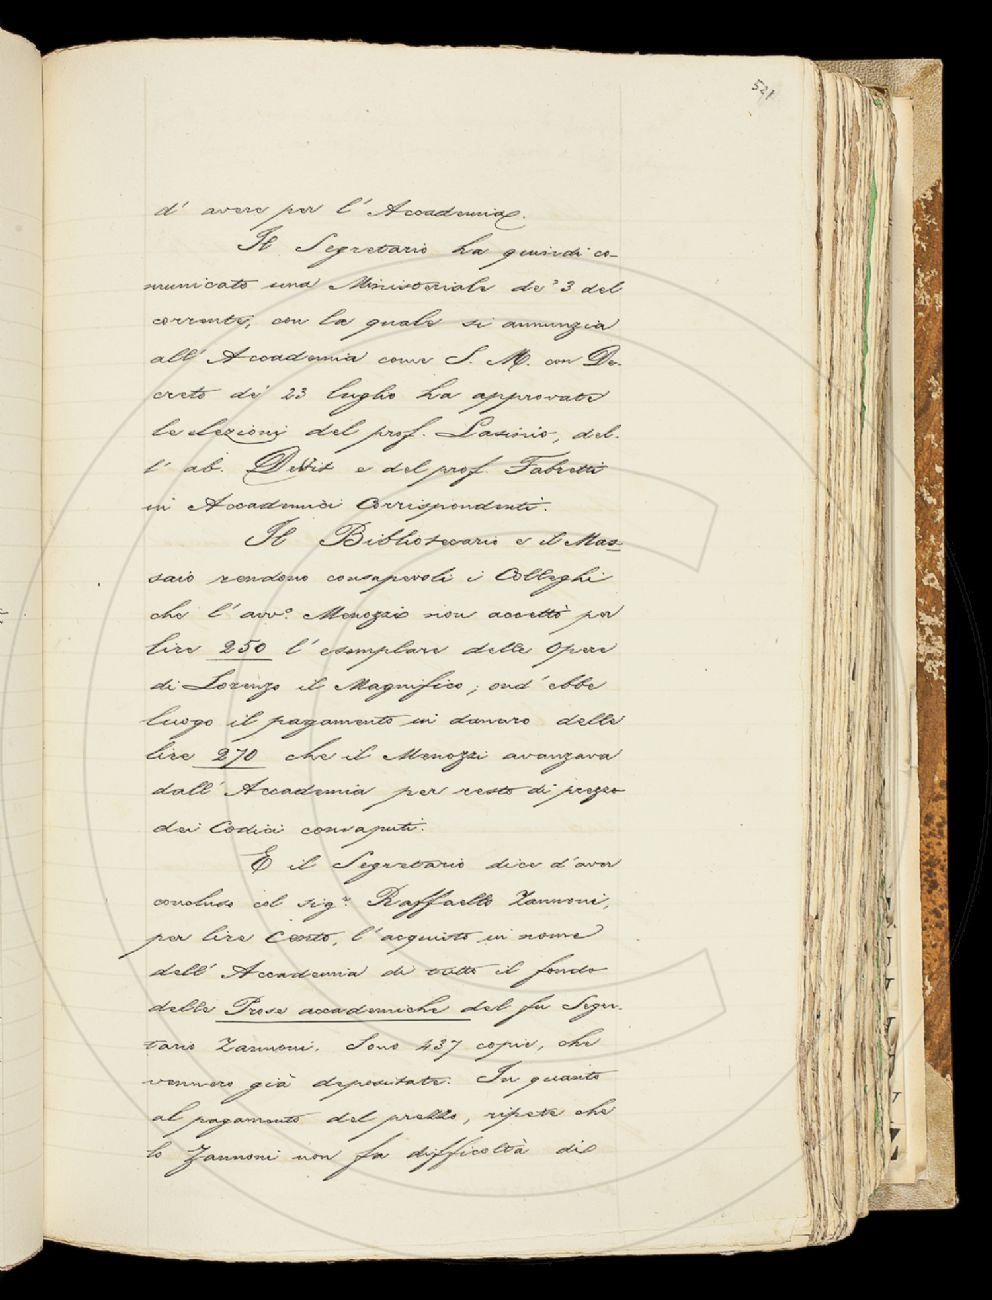 521
d' avere per l' Accademia.
Il Segretario ha quindi co-
municato una Ministeriale de' 3 del
corrente, con la quale si annunzia
all' Accademia come S. M. con De-
creto de' 23 luglio ha approvate
le elezioni del prof. Lasinio, del-
l' ab. DeVit e del prof. Fabretti
in Accademici Corrispondenti.
Il Bibliotecario e il Mas-
saio rendono consapevoli i Colleghi
che l' avv.º Menozzi non accettò per
lire 250 l' esemplare delle Opere
di Lorenzo il Magnifico; ond' ebbe
luogo il pagamento in danaro delle
lire 270 che il Menozzi avanzava
dall' Accademia per resto di prezzo
dei Codici consaputi.
E il Segretario dice d' aver
concluso col sig.r Raffaello Zannoni,
per lire Cento, l' acquisto in nome
dell' Accademia di tutto il fondo
delle Prose accademiche del fu Segre-
tario Zannoni. Sono 437 copie, che
vennero già depositate. In quanto
al pagamento del prezzo, ripete che
lo Zannoni non fa difficoltà di